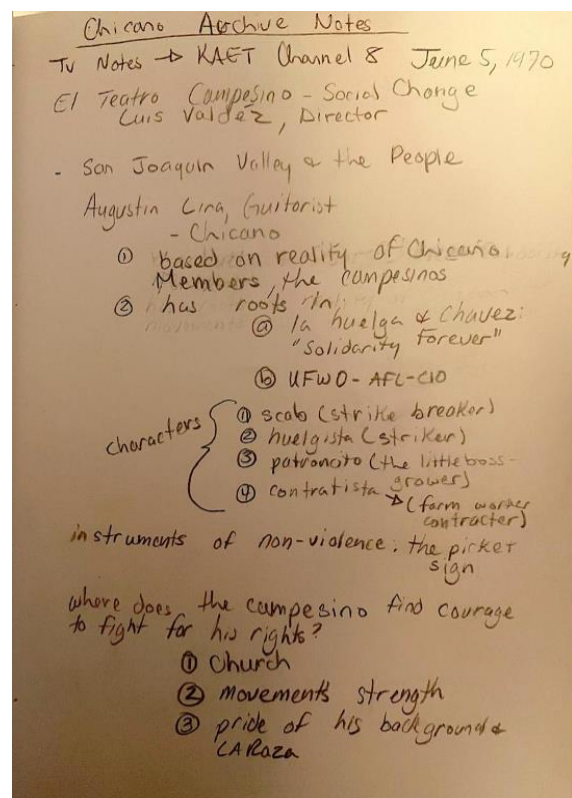 Chicano Archive Notes
TV Notes → KAET Channel 8 June 5, 1970
El Teatro Campesino - Social Change
Luis Valdéz, Director
- San Joaquin Valley & the People
Augustin Lira, Guitorist
- Chicano
① based on reality of Chicano
Members, the campesinos
② has roots in
ⓐ la huelga & Chavez:
"Solidarity Forever"
ⓑ UFWO - AFL-CIO
characters
① scab (strike breaker)
② huelgista (striker)
③ patroncito (the little boss-
grower)
④ contratista → (farm worker
contracter)
instruments of non-violence: the picket
sign
where does the campesino find courage
to fight for his rights?
① Church
② movements strength
③ pride of his background &
LA Raza